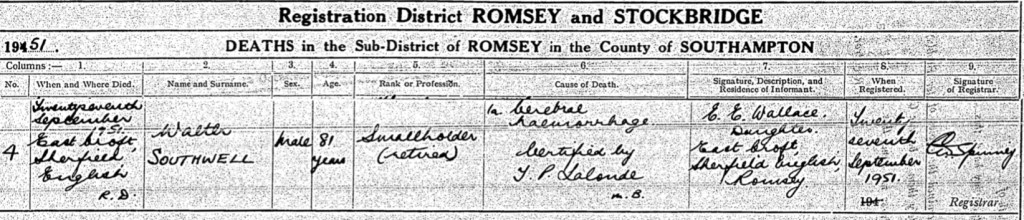 Registration District ROMSEY and STOCKBRIDGE
1951. DEATHS in the Sub-District of ROMSEY in the County of SOUTHAMPTON
Columns:— 1. 2. 3. 4. 5. 6. 7. 8. 9.
No. When and Where Died. Name and Surname. Sex. Age. Rank or Profession. Cause of Death. Signature, Description, and Residence of Informant. When Registered. Signature of Registrar.
4
Twentyseventh
September
1951.
East Croft,
Sherfield
English
R.D.
Walter
SOUTHWELL
Male
81
years
Smallholder
(retired)
1a. Cerebral
haemorrhage
Certified by
T. P. Lalonde
M.B.
E. E. Wallace.
Daughter.
East Croft,
Sherfield English,
Romsey
Twenty
seventh
September
1951.
194
Registrar